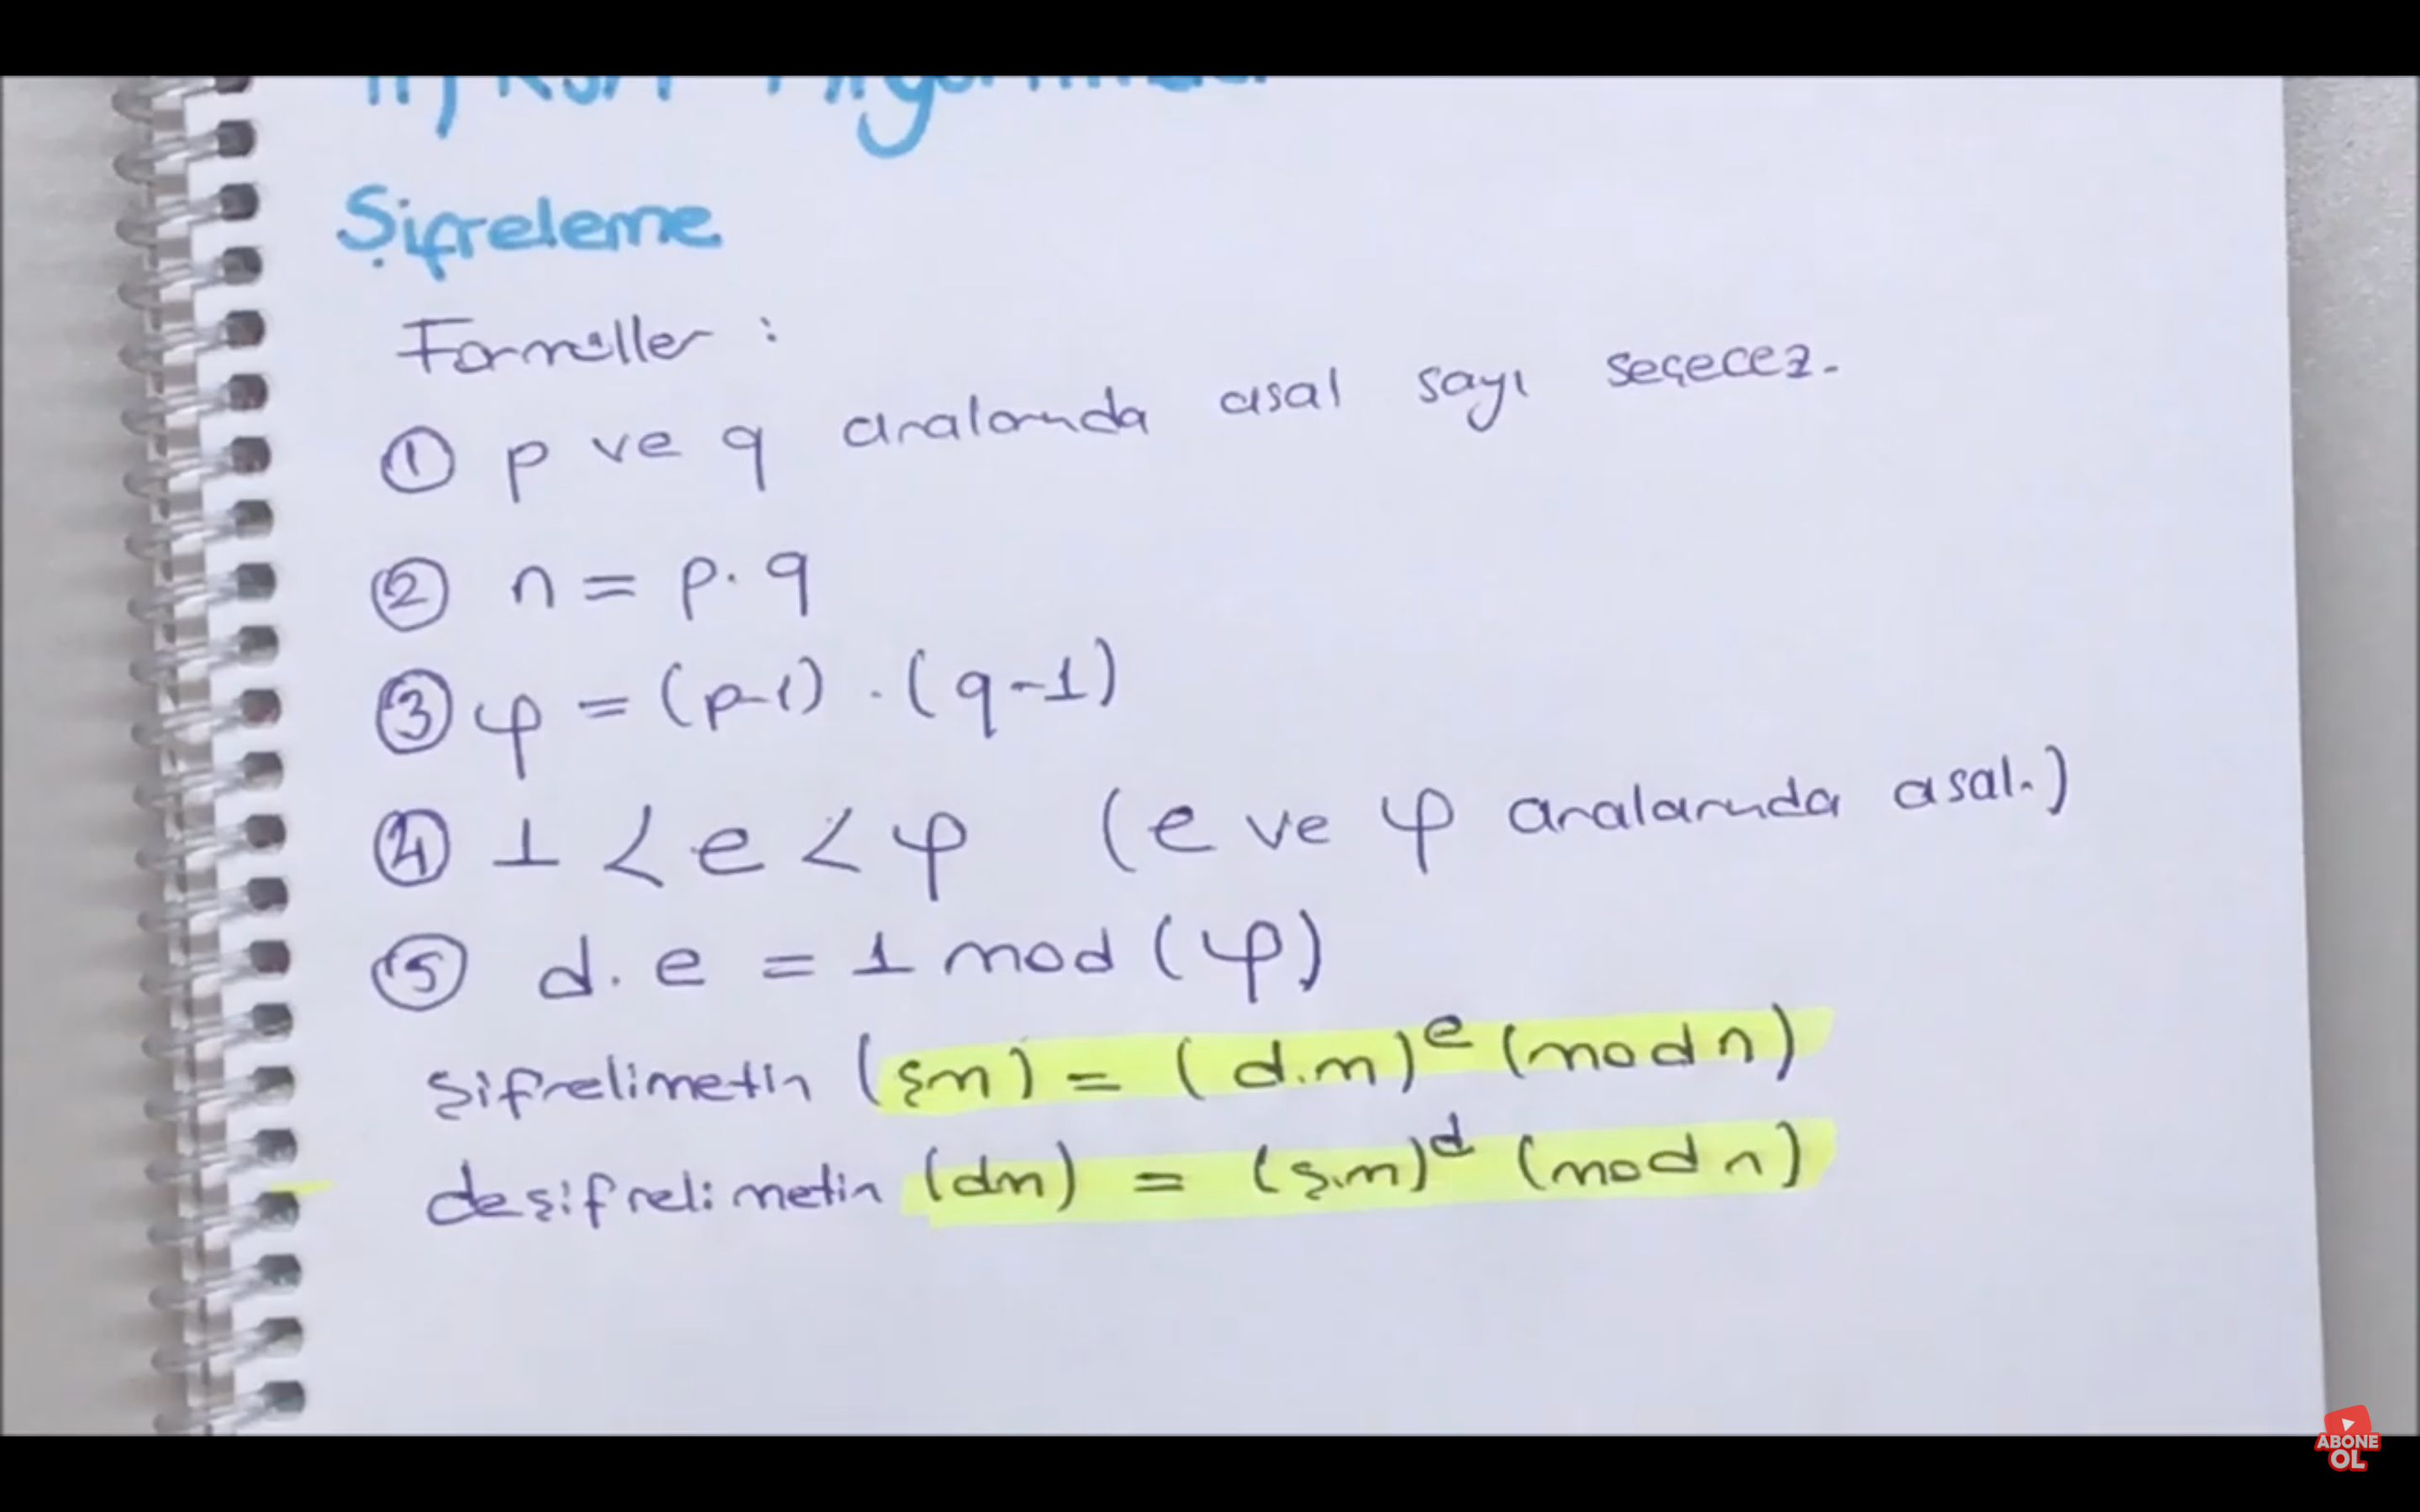 RSA Algoritması
Şifreleme
Formüller :
① p ve q aralarında asal sayı seçecez.
② n = p . q
③ φ = (p-1) . (q-1)
④ 1 < e < φ (e ve φ aralarında asal.)
⑤ d . e = 1 mod (φ)
şifrelimetin (şm) = (d.m)^e (mod n)
deşifreli metin (dm) = (ş.m)^d (mod n)
ABONE
OL